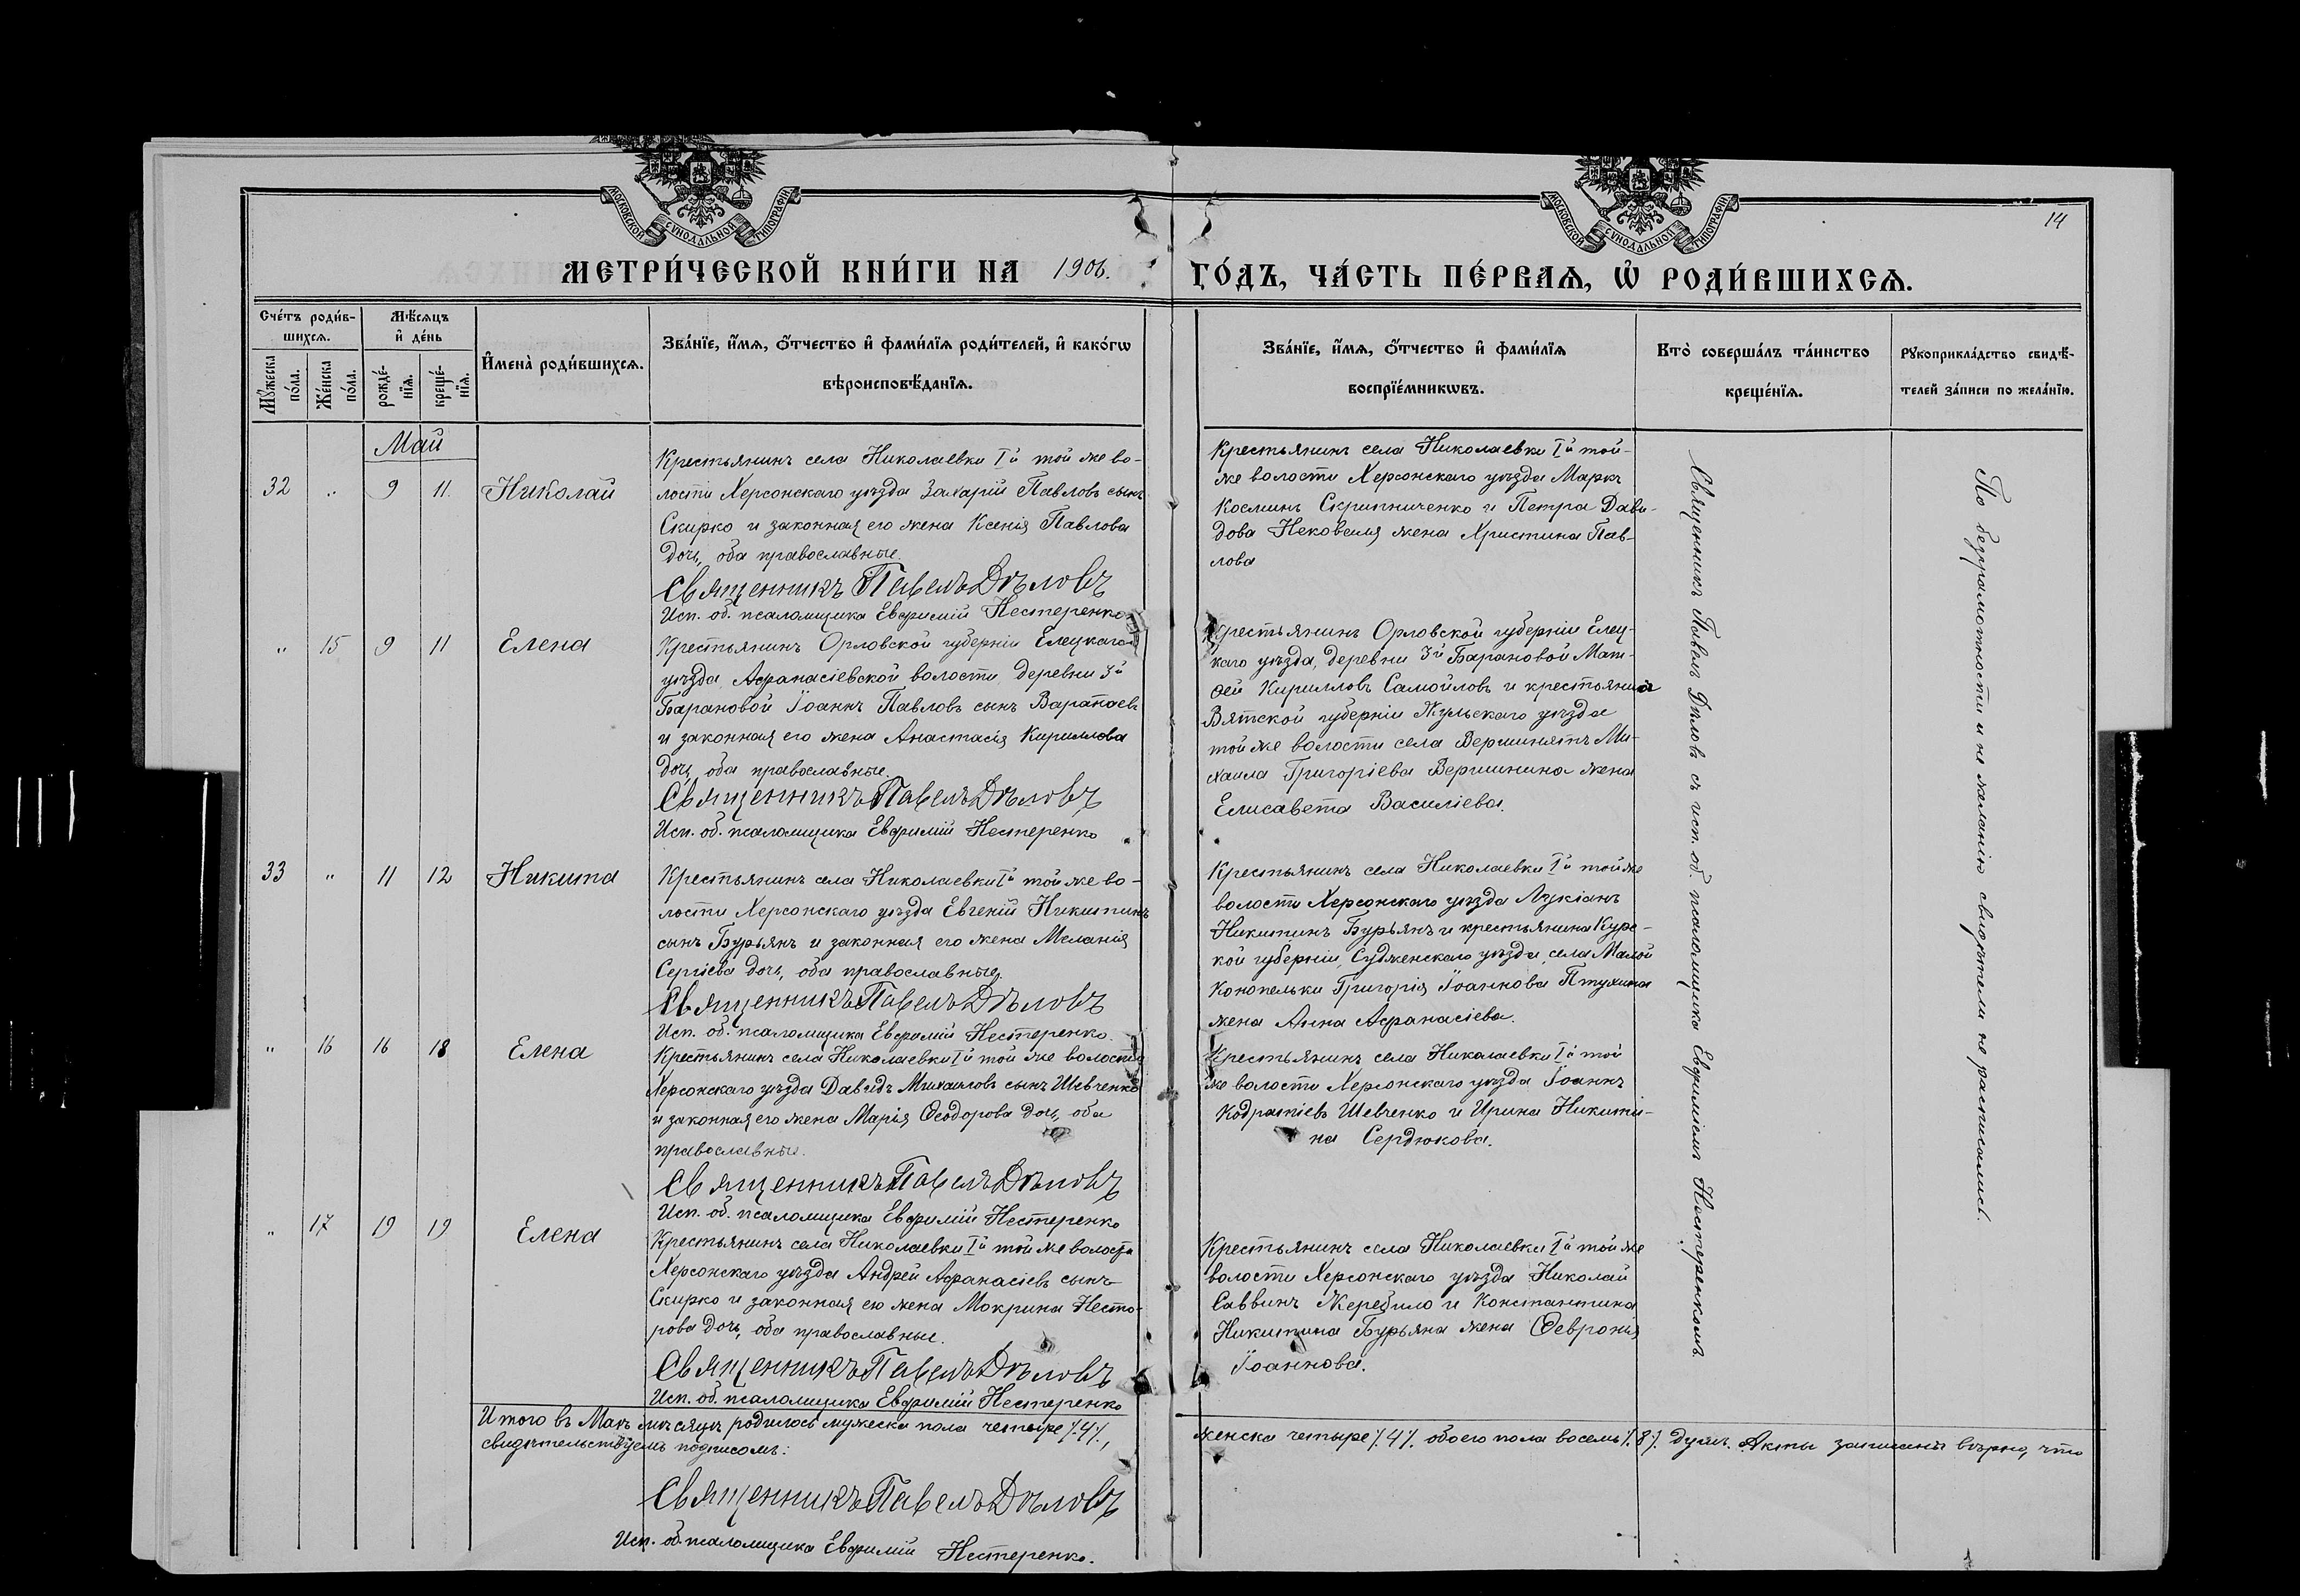 МОСКОВСКОЙ СУНОДАЛЬНОЙ ТИПОГРАФІИ
МОСКОВСКОЙ СУНОДАЛЬНОЙ ТИПОГРАФІИ
14
МЕТРИ́ЧЕСКОЙ КНИ́ГИ НА 1906. ГО́ДЪ, ЧА́СТЬ ПЕ́РВАѦ, Ѽ РОДИ́ВШИХСѦ.
Сче́тъ роди́в-
шихсѧ.
Мꙋ́жеска по́ла.
Же́нска по́ла.
Мѣ́сѧцъ
и҆ де́нь
рожде́-
нїѧ.
креще́-
нїѧ.
И҆мена̀ роди́вшихсѧ.
Зва́нїе, и҆́мѧ, ѻ҆́тчество и҆ фами́лїѧ роди́телей, и҆ како́гѡ
вѣроисповѣ́данїѧ.
Зва́нїе, и҆́мѧ, ѻ҆́тчество и҆ фами́лїѧ
воспрїе́мникѡвъ.
Кто̀ соверша́лъ та́инство
креще́нїѧ.
Рꙋкоприкла́дство свидѣ́-
телей за́писи по жела́нїю.
Май
32 " 9 11 Николай
Крестьянинъ села Николаевки Iй той же во-
лости Херсонскаго уѣзда Захарій Павловъ сынъ
Скирко и законная его жена Ксенія Павлова
дочь, оба православные.
Священникъ Павелъ Дѣловъ
Исп. об. псаломщика Евфимій Нестеренко
Крестьянинъ села Николаевки Iй той-
же волости Херсонскаго уѣзда Маркъ
Косминъ Скрипниченко и Петра Дави-
дова Нековеля жена Христина Пав-
лова
" 15 9 11 Елена
Крестьянинъ Орловской губерніи Елецкаго
уѣзда, Афанасіевской волости, деревни 3й
Барановой Іоаннъ Павловъ сынъ Варатаевъ
и законная его жена Анастасія Кириллова
дочь, оба православные.
Священникъ Павелъ Дѣловъ
Исп. об. псаломщика Евфимій Нестеренко
Крестьянинъ Орловской губерніи Елец-
каго уѣзда, деревни 3й Барановой Мат-
ѳей Кирилловъ Самойловъ и крестьянина
Вятской губерніи уѣзда
той же волости села Вершинятъ Ми-
хаила Григоріева Вершинина жена
Елисавета Василіева.
33 " 11 12 Никита
Крестьянинъ села Николаевки Iй той же во-
лости Херсонскаго уѣзда Евгеній Никитинъ
сынъ Бурьянъ и законная его жена Меланія
Сергіева дочь, оба православные.
Священникъ Павелъ Дѣловъ
Исп. об. псаломщика Евфимій Нестеренко.
Крестьянинъ села Николаевки Iй той же
волости Херсонскаго уѣзда Лукіанъ
Никитинъ Бурьянъ и крестьянина Курс-
кой губерніи, Судженскаго уѣзда, села Малой
Конопельки Григорія Іоаннова Птухина
жена Анна Афанасіева.
" 16 16 18 Елена
Крестьянинъ села Николаевки Iй той же волости
Херсонскаго уѣзда Давидъ Михаиловъ сынъ Шевченко
и законная его жена Марія Ѳеодорова дочь, оба
православные.
Священникъ Павелъ Дѣловъ
Исп. об. псаломщика Евфимій Нестеренко
Крестьянинъ села Николаевки Iй той
же волости Херсонскаго уѣзда Іоаннъ
Кодратіевъ Шевченко и Ирина Никити-
на Сердюкова.
" 17 19 19 Елена
Крестьянинъ села Николаевки Iй той же волости
Херсонскаго уѣзда Андрей Афанасіевъ сынъ
Скирко и законная его жена Мокрина Несто-
рова дочь, оба православные.
Священникъ Павелъ Дѣловъ
Исп. об. псаломщика Евфимій Нестеренко
Крестьянинъ села Николаевки Iй той же
волости Херсонскаго уѣзда Николай
Саввинъ Жеребило и Константина
Никитина Бурьяна жена Ѳевронія
Іоаннова.
Священникъ Павелъ Дѣловъ съ исп. об. псаломщика Евфиміемъ Нестеренкомъ
По безграмотности и не желанію свидѣтели не расписались.
Итого въ Маѣ мѣсяцѣ родилось мужеска пола четыре /.4/., женска четыре /.4/. обоего пола восемь /.8/. душъ. Акты записаны вѣрно, что
свидѣтельствуемъ подписомъ:
Священникъ Павелъ Дѣловъ
Исп. об. псаломщика Евфимій Нестеренко.